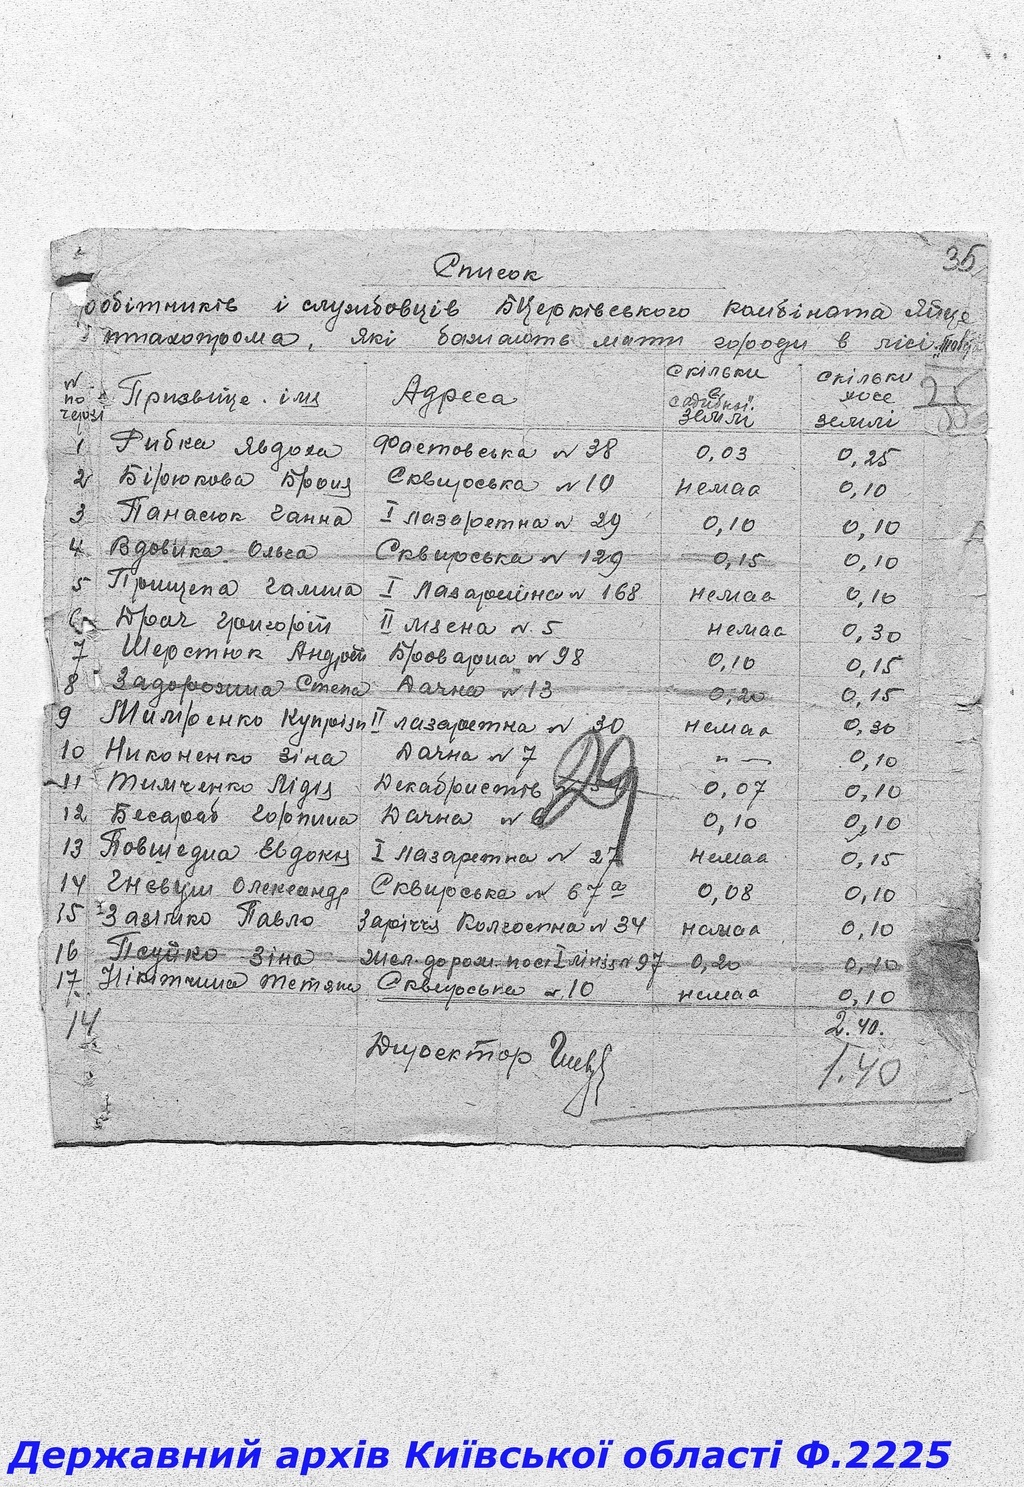 35
Список
робітників і службовців БЦерківського комбіната Яйце
птахопрома, які бажають мати городи в лісі
№ по черзі Призвіще імя Адреса Скільки є садибної землі Скільки хоче землі
25
1 Рибка Явдоха Фастовська № 38 0,03 0,25
2 Бірюкова Броня Сквирська № 10 немаа 0,10
3 Панасюк Ганна I лазаретна № 29 0,10 0,10
4 Вдовика Ольга Сквирська № 129 0,15 0,10
5 Прищепа Галина I Лазаретна № 168 немаа 0,10
6 Драч Григорій II № 5 немаа 0,30
7 Шерстюк Андрій Броварна № 98 0,10 0,15
8 Задорожна Степа Дачна № 13 0,20 0,15
9 Купріян II лазаретна № 30 немаа 0,30
10 Никоненко Зіна Дачна № 7 " — 0,10
11 Тимченко Лідія Декабристів 0,07 0,10
12 Бесараб Горпина Дачна № 6 0,10 0,10
29
13 Евдокія I лазаретна № 27 немаа 0,15
14 Гнєвуш Олександр Сквирська № 67а 0,08 0,10
15 Павло Заріччя Колгоспна № 34 немаа 0,10
16 Зіна I лінія № 97 0,20 0,10
17 Нікітчина Тетяна Сквирська № 10 немаа 0,10
14 2.40.
Директор
1.40
Державний архів Київської області Ф.2225